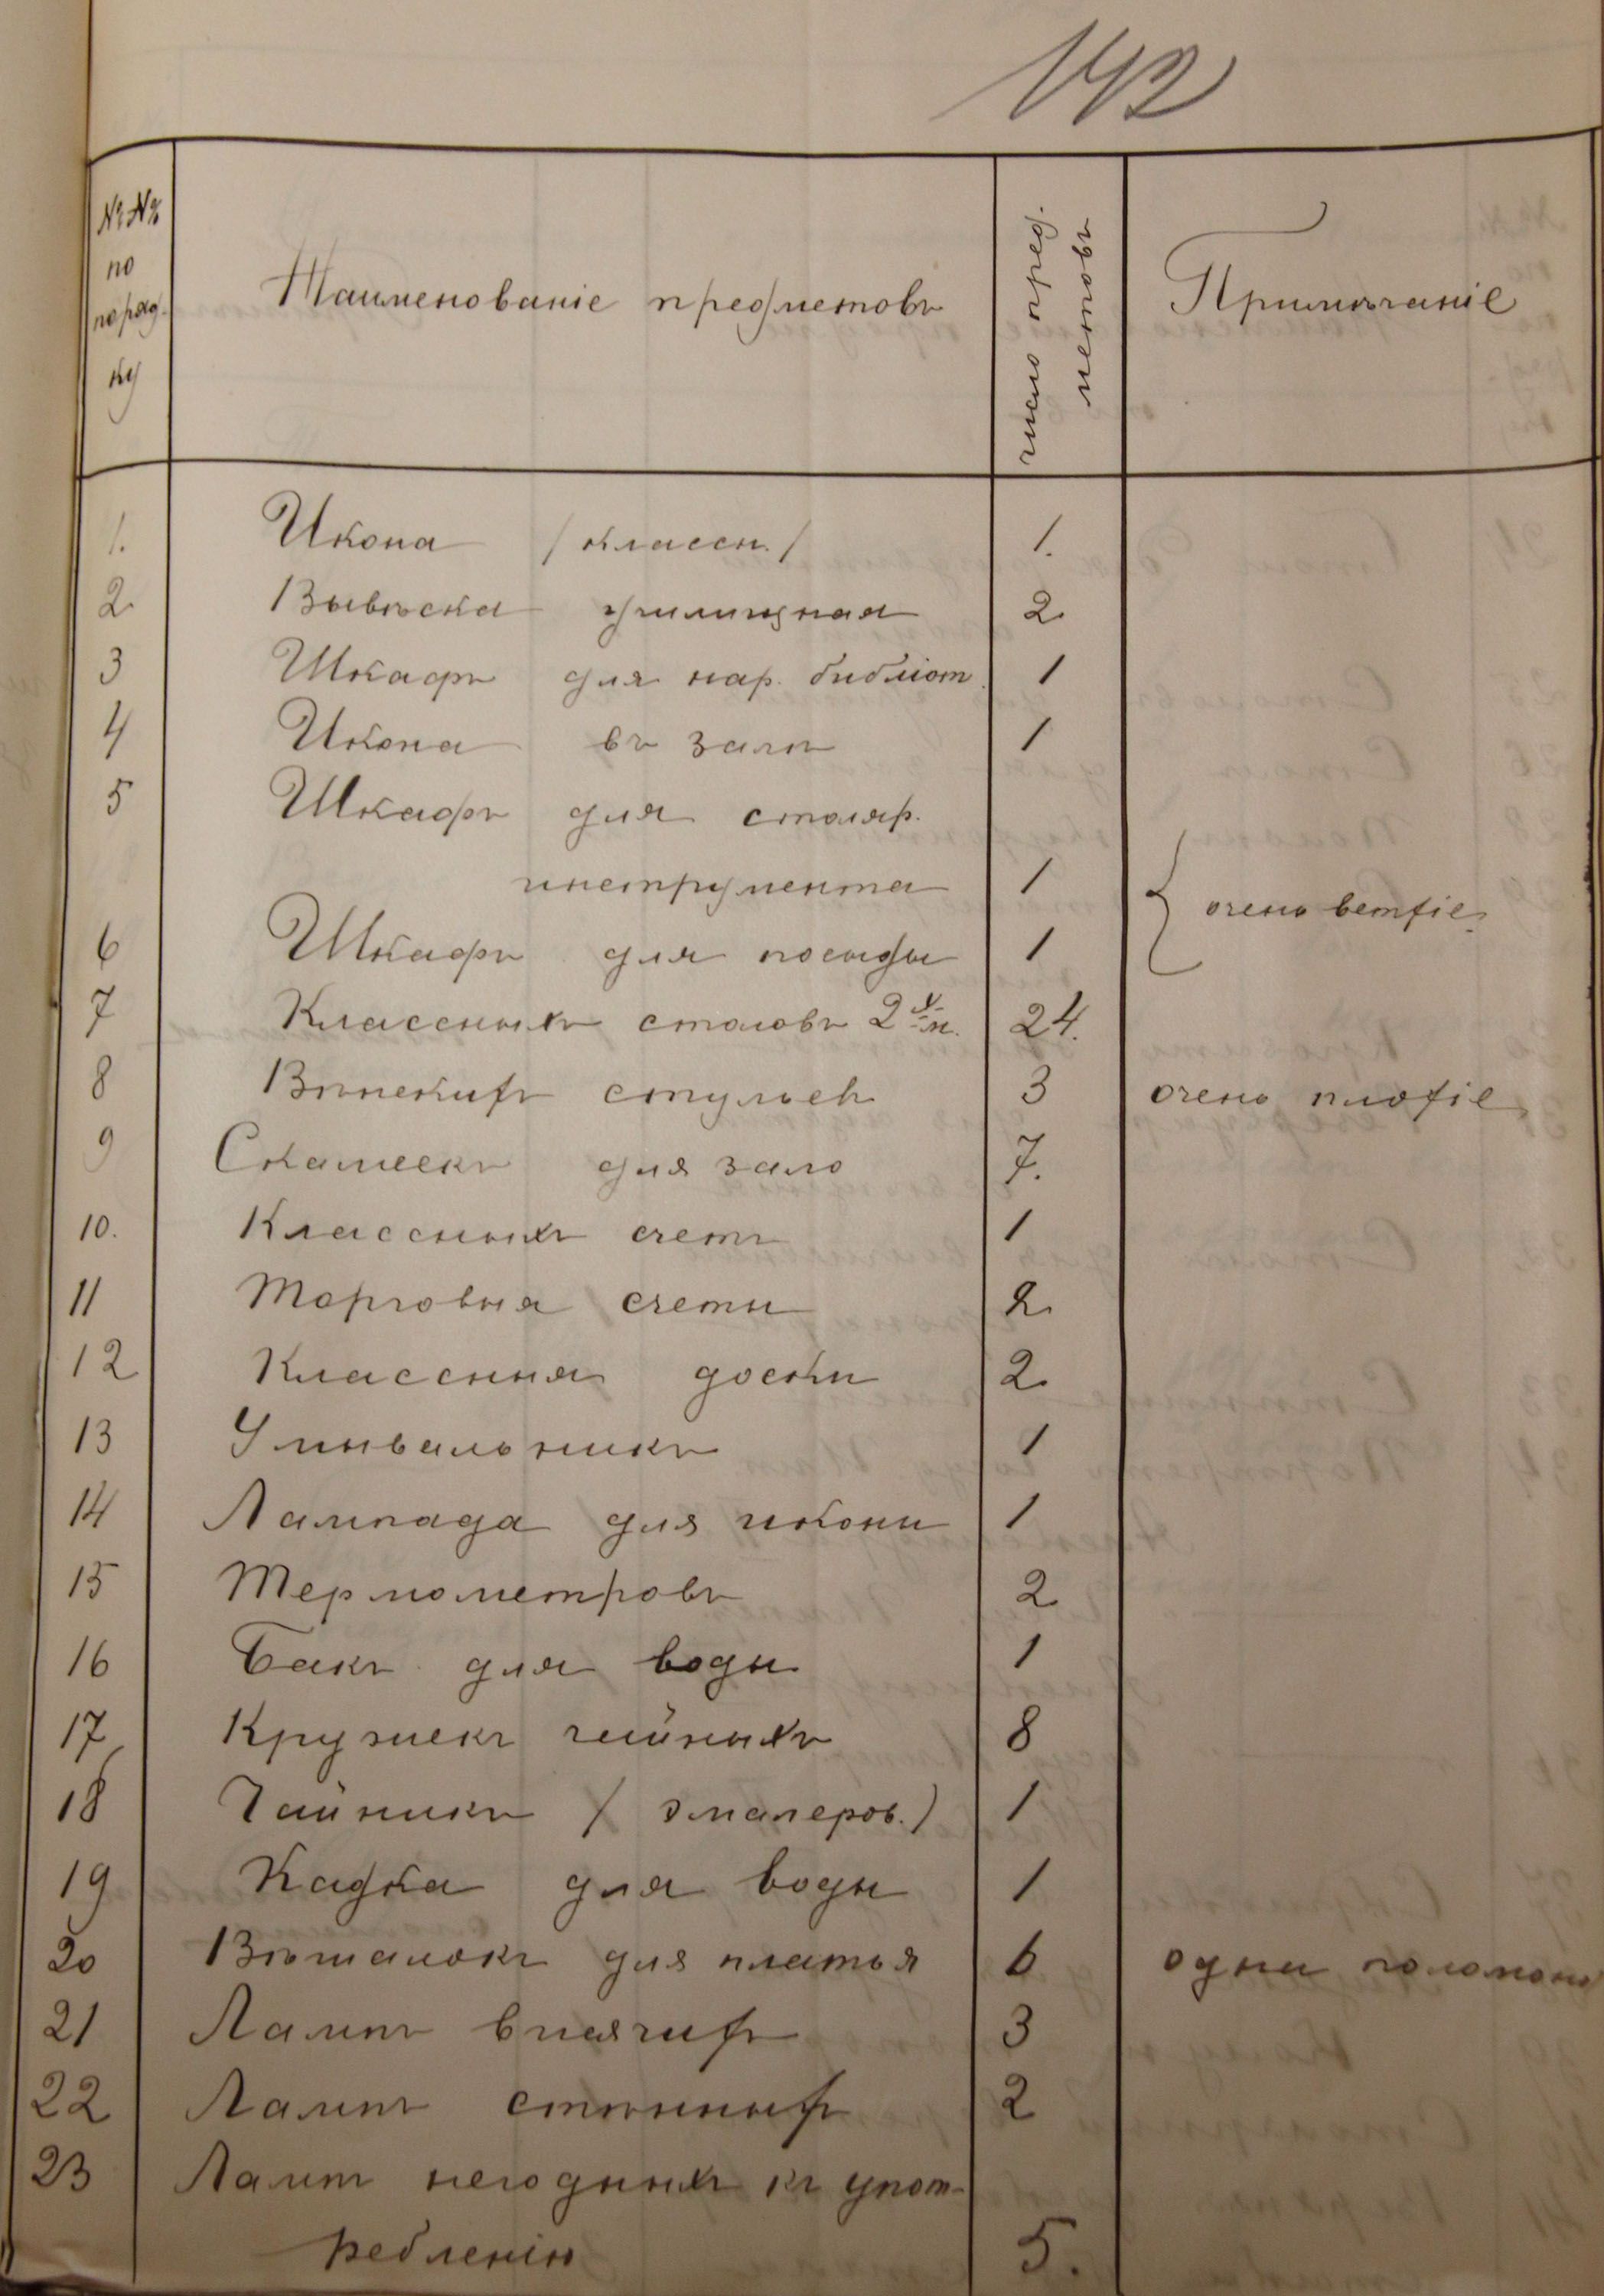 142
№№ по порядку
Наименованіе предметовъ
число пред.
метовъ
Примѣчаніе
1. Икона /классн./ 1.
2 Вывѣска училищная 2
3 Шкафъ для нар. библіот. 1
4 Икона въ залѣ 1
5 Шкафъ для столяр.
инструмента 1
очень ветхіе.
6 Шкафъ для посуды 1
7 Классныхъ столовъ 2х м. 24.
8 Вѣнскихъ стульевъ 3 очень плохіе
9 Скамеекъ для зало 7.
10. Классныхъ счетъ 1
11 Торговыя счеты 2
12 Классныя доски 2
13 Умывальникъ 1
14 Лампада для иконы 1
15 Термометровъ 2
16 Бакъ для воды 1
17 Кружекъ чайныхъ 8
18 Чайникъ /эмалеров.) 1
19 Кадка для воды 1
20 Вѣшалокъ для платья 6 одна поломана
21 Лампъ висячихъ 3
22 Лампъ стѣнныхъ 2
23 Лампъ негодныхъ къ упот-
ребленію 5.